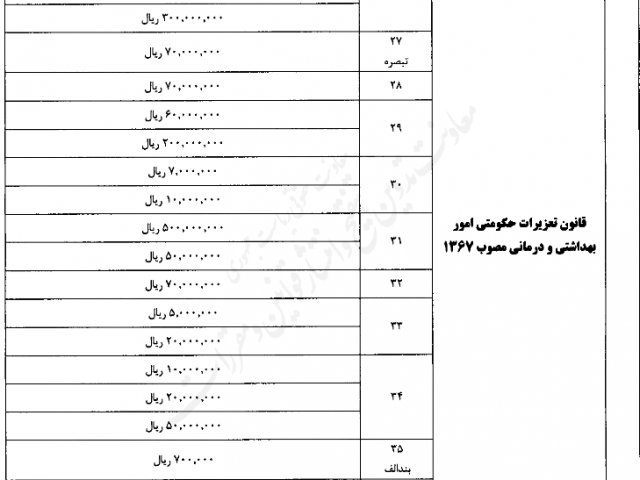 قانون تعزیرات حکومتی امور
بهداشتی و درمانی مصوب ۱۳۶۷
۳۰۰,۰۰۰,۰۰۰ ریال
۲۷
تبصره
۷۰,۰۰۰,۰۰۰ ریال
۲۸
۷۰,۰۰۰,۰۰۰ ریال
۲۹
۶۰,۰۰۰,۰۰۰ ریال
۲۰۰,۰۰۰,۰۰۰ ریال
۳۰
۷,۰۰۰,۰۰۰ ریال
۱۰,۰۰۰,۰۰۰ ریال
۳۱
۵۰۰,۰۰۰,۰۰۰ ریال
۵۰,۰۰۰,۰۰۰ ریال
۳۲
۷۰,۰۰۰,۰۰۰ ریال
۳۳
۵,۰۰۰,۰۰۰ ریال
۲۰,۰۰۰,۰۰۰ ریال
۳۴
۱۰,۰۰۰,۰۰۰ ریال
۲۰,۰۰۰,۰۰۰ ریال
۵۰,۰۰۰,۰۰۰ ریال
۳۵
بندالف
۷۰۰,۰۰۰ ریال
معاونت تدوین، تنقیح و انتشار قوانین و مقررات